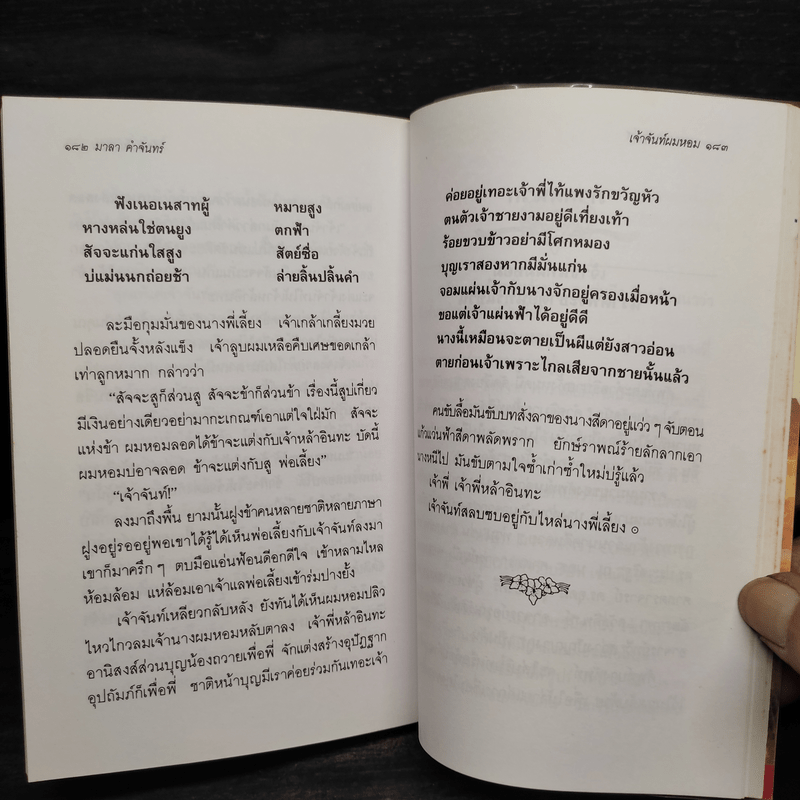 ๑๘๒ มาลา คำจันทร์
ฟังเนอเนสาทผู้ หมายสูง
หางหล่นใช่ตนยูง ตกฟ้า
สัจจะแก่นใสสูง สัตย์ชื่อ
บ่แม่นนกถ่อยช้า ล่ายลิ้นปลิ้นคำ
ละมือกุมมั่นของนางพี่เลี้ยง เจ้าเกล้าเกลี้ยงมวย
ปลอดยืนจั้งหลังแข็ง เจ้าลูบผมเหลือคืบเศษขอดเกล้า
เท่าลูกหมาก กล่าวว่า
“สัจจะสูก็ส่วนสู สัจจะข้าก็ส่วนข้า เรื่องนี้สูบ่เกี่ยว
มีเงินอย่างเดียวอย่ามากะเกณฑ์เอาแต่ใจใฝ่มัก สัจจะ
แห่งข้า ผมหอมลอดได้ข้าจะแต่งกับเจ้าหล้าอินทะ บัดนี้
ผมหอมบ่อาจลอด ข้าจะแต่งกับสู พ่อเลี้ยง”
“เจ้าจันท์!”
ลงมาถึงพื้น ยามนั้นฝูงข้าคนหลายชาติหลายภาษา
ฝูงอยู่รออยู่พอเขาได้รู้ได้เห็นพ่อเลี้ยงกับเจ้าจันท์ลงมา
เขาก็มาครึกๆ ตบมือแอ่นฟ้อนดีอกดีใจ เข้าหลามไหล
ห้อมล้อม แห่ล้อมเอาเจ้าแลพ่อเลี้ยงเข้าร่มปางยั้ง
เจ้าจันท์เหลียวกลับหลัง ยังทันได้เห็นผมหอมปลิว
ไหวไกวลมเจ้านางผมหอมหลับตาลง เจ้าพี่หล้าอินทะ
อานิสงส์ส่วนบุญน้องถวายเพื่อพี่ จักแต่งสร้างอุปัฏฐาก
อุปถัมภ์ก็เพื่อพี่ ชาติหน้าบุญมีเราค่อยร่วมกันเทอะเจ้า
เจ้าจันท์ผมหอม ๑๘๓
ค่อยอยู่เทอะเจ้าพี่ไท้แพงรักขวัญหัว
ตนตัวเจ้าชายงามอยู่ดีเที่ยงเท้า
ร้อยขวบข้าวอย่ามีโศกหมอง
บุญเราสองหากมีมั่นแก่น
จอมแผ่นเจ้ากับนางจักอยู่ครองเมื่อหน้า
ขอแต่เจ้าแผ่นฟ้าได้อยู่ดีดี
นางนี้เหมือนจะตายเป็นผีแต่ยังสาวอ่อน
ตายก่อนเจ้าเพราะไกลเสียจากชายนั้นแล้ว
คนขับลื้อมันขับบทสั่งลาของนางสีดาอยู่แว่วๆ จับตอน
แก้วแว่นฟ้าสีดาพลัดพราก ยักษ์ราพณ์ร้ายลักลากเอา
นางหนีไป มันขับตามใจซ้ำเก่าซ้ำใหม่บ่รู้แล้ว
เจ้าพี่ เจ้าพี่หล้าอินทะ
เจ้าจันท์สลบซบอยู่กับไหล่นางพี่เลี้ยง ๏